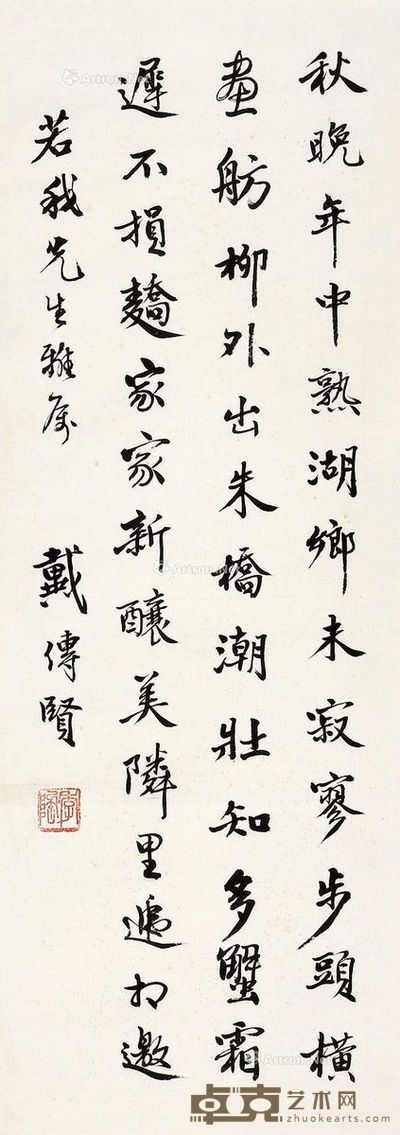 秋晚年中熟湖鄉未寂寥步頭橫
畫舫柳外出朱橋潮壯知多蟹霜
遲不損蕎家家新釀美隣里遞相邀
若我先生雅屬
戴傳賢
卓克艺术网
zhuokearts.com
Artron.Net